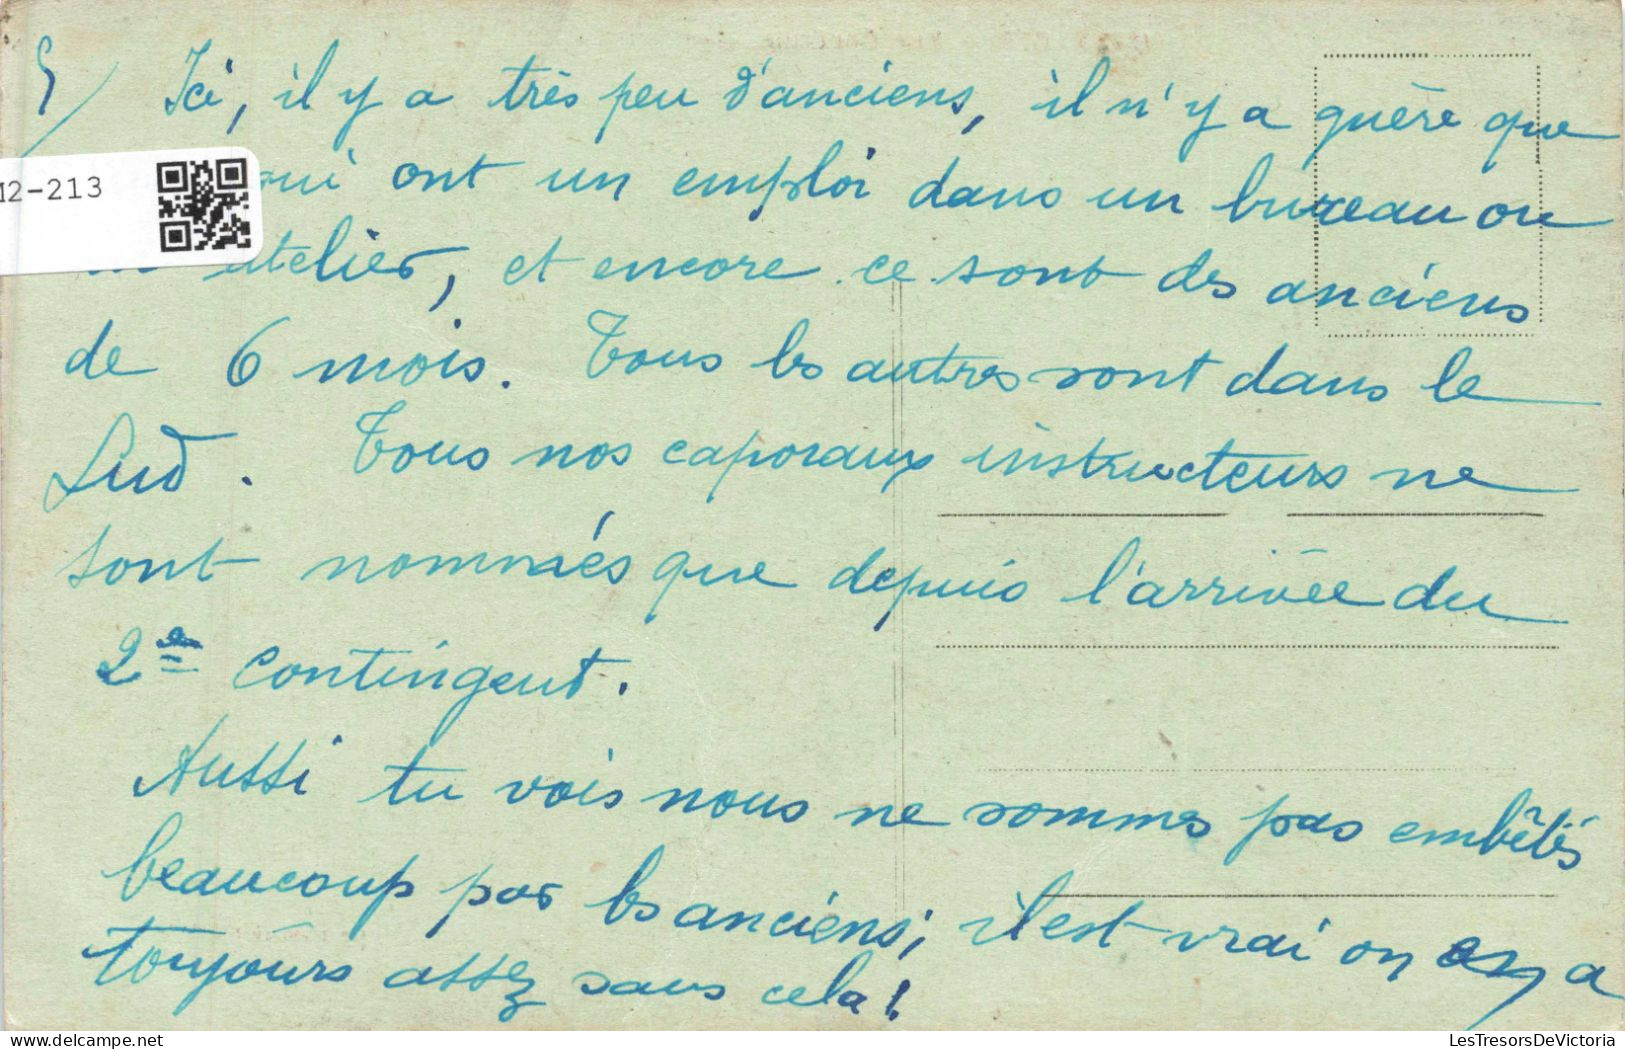 5/ Ici, il y a très peu d'anciens, il n'y a guère que
M2-213
qui ont un emploi dans un bureau ou
un atelier, et encore ce sont des anciens
de 6 mois. Tous les autres sont dans le
Sud. Tous nos caporaux instructeurs ne
sont nommés que depuis l'arrivée du
2em contingent.
Aussi tu vois nous ne sommes pas embêtés
beaucoup par les anciens; il est vrai on en a
toujours assez sans cela!
LesTresorsDeVictoria